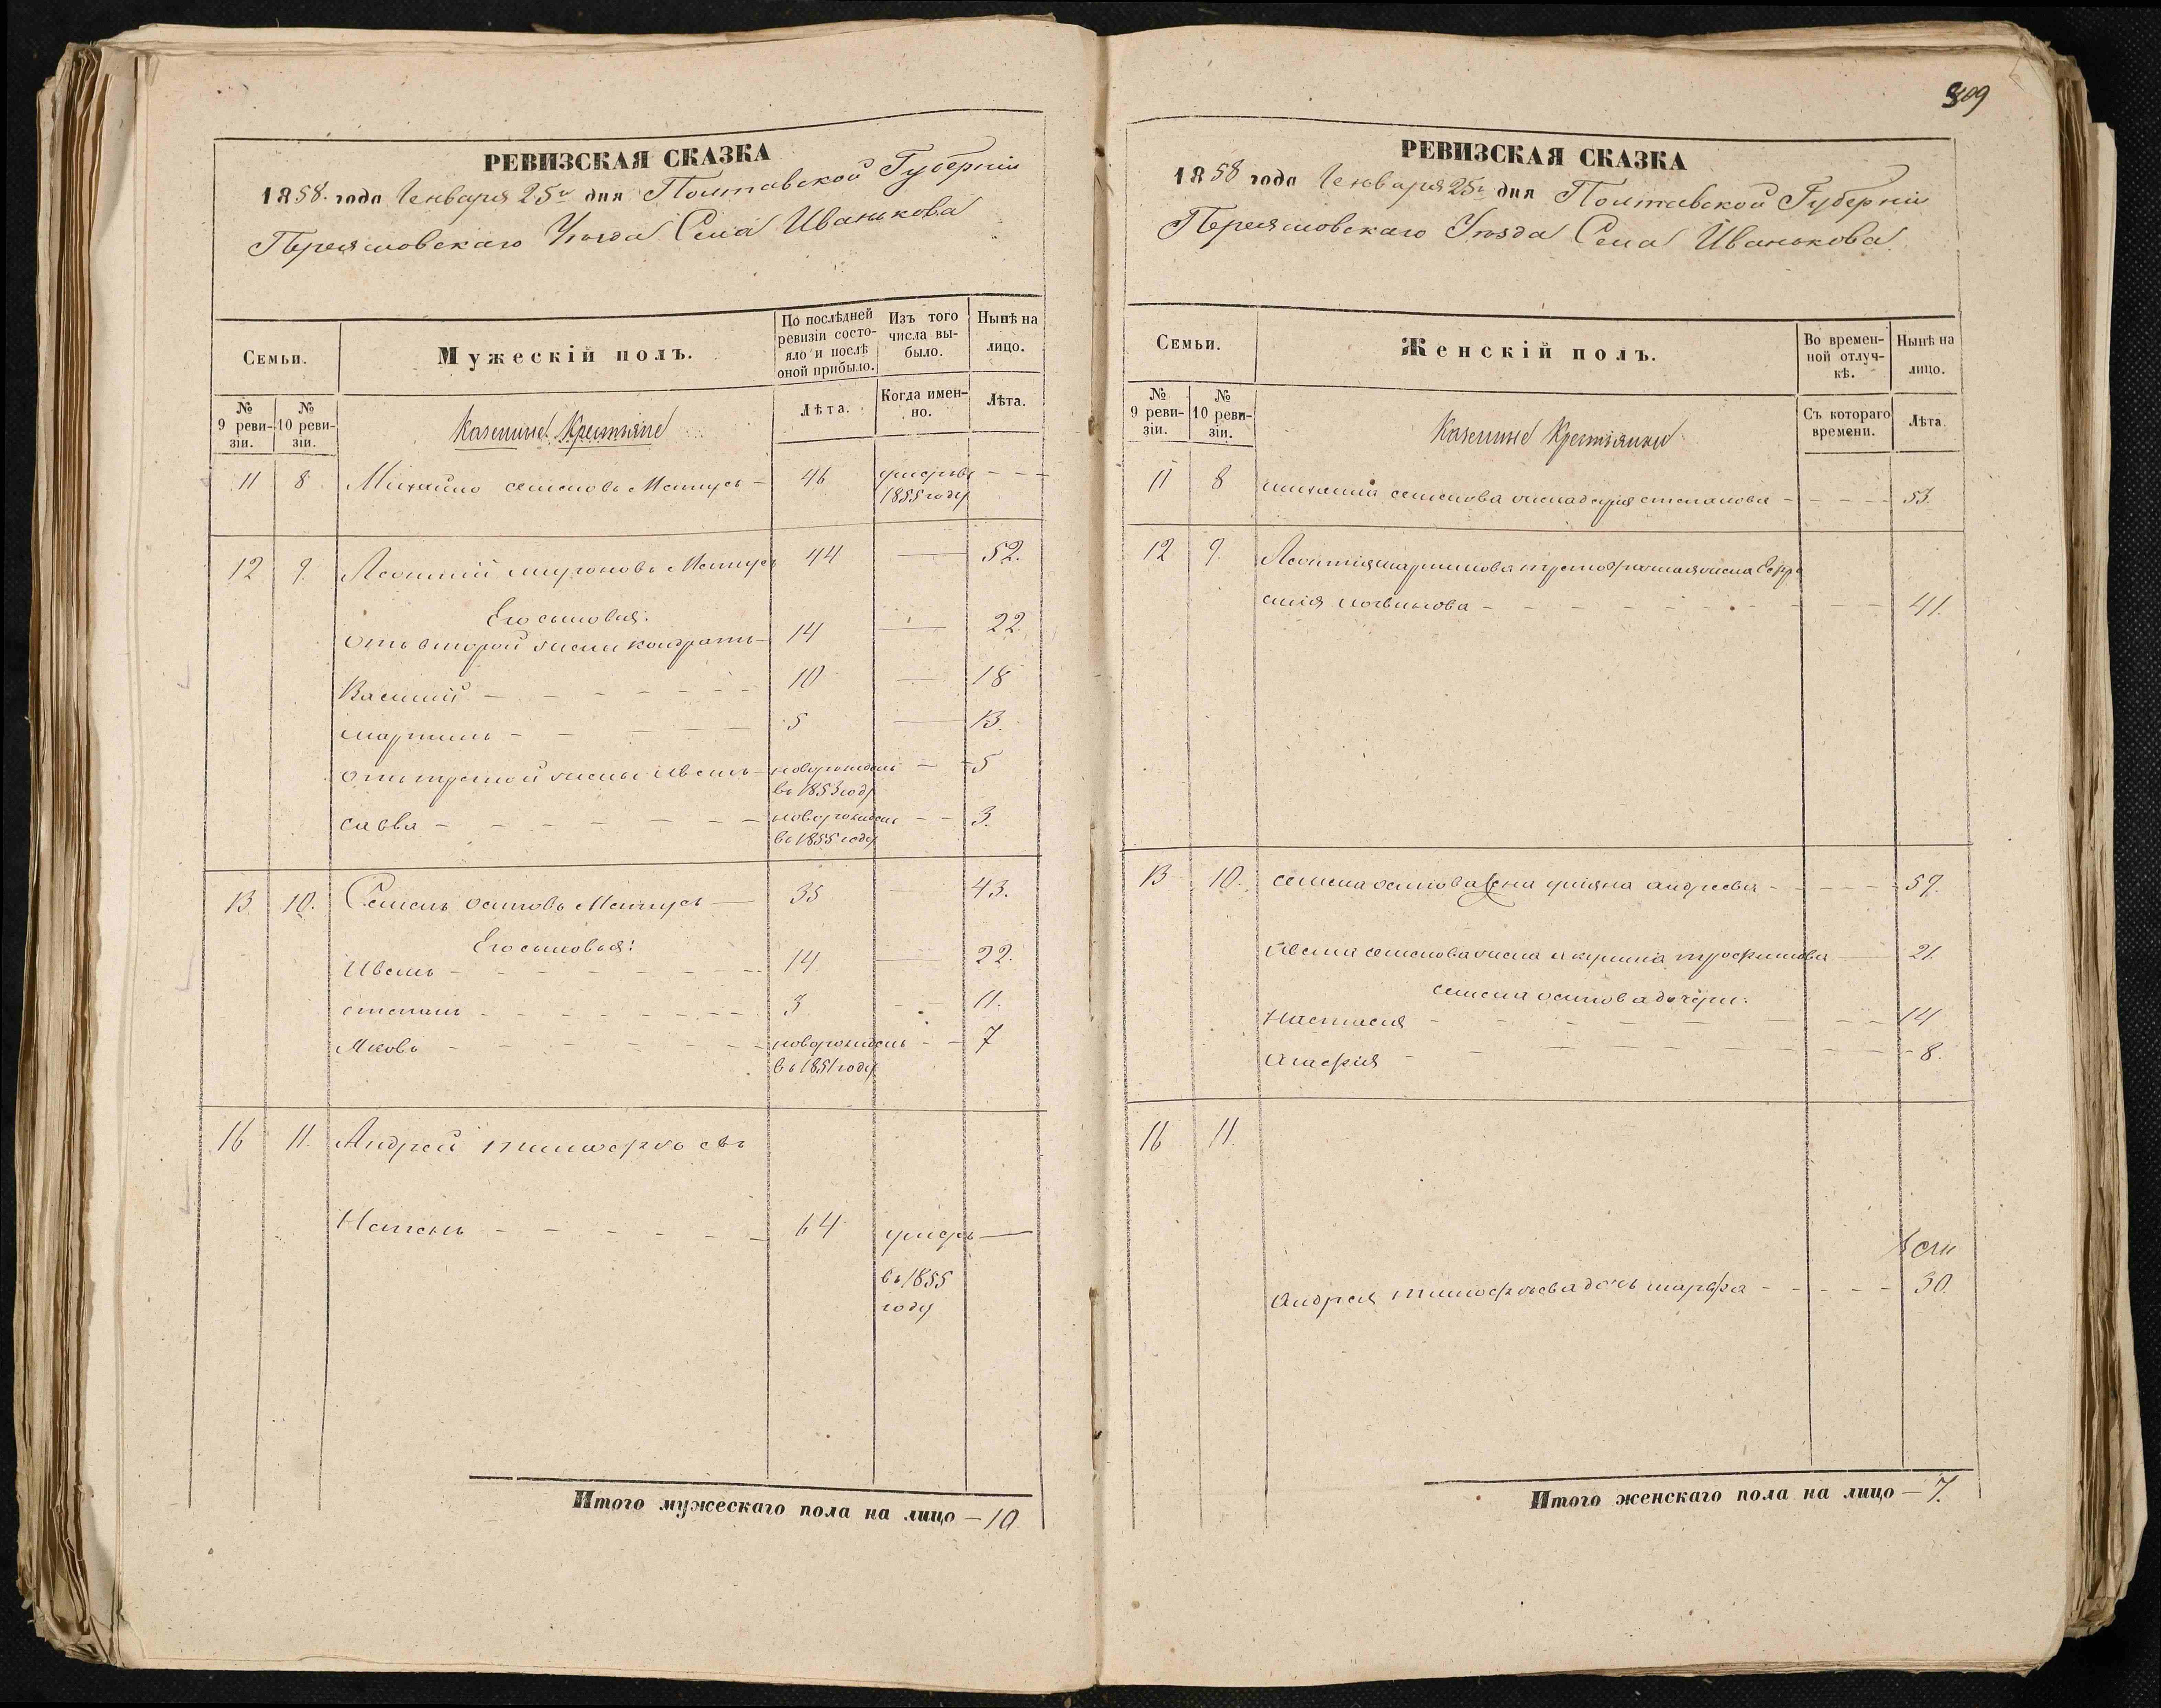 РЕВИЗСКАЯ СКАЗКА
1858. года Генваря 25го дня Полтавской Губерніи
Переяславского Уѣзда Села Иванькова
Семьи.
Мужескій полъ.
По послѣдней ревизіи состояло и послѣ оной прибыло.
Изъ того числа выбыло.
Нынѣ на лицо.
№ 9 ревизіи.
№ 10 ревизіи.
Казенные Крестьяне
Лѣта.
Когда именно.
Лѣта.
11 8 Михайло семеновъ 46 умерлъ
1855 году
12 9. Леонтій 44 — 52.
Его сыновья:
отъ второй жены кондратъ — 14 — 22
Василій 10 — 18
мартинъ 5 — 13.
отъ третей жены Иванъ новорожденъ — 5
въ 1853 году
савва новорожденъ — 3.
въ 1855 году
13. 10. Семенъ осиповъ 35 — 43.
Его сыновья:
Иванъ 14 — 22.
степанъ 3 — 11.
Яковъ новорожденъ — 7
въ 1851 году
16 11. Андрей тимофѣевъ
64 умеръ —
въ 1855
году
Итого мужескаго пола на лицо — 10
809
РЕВИЗСКАЯ СКАЗКА
1858 года Генваря 25го дня Полтавской Губерніи
Переяславского Уѣзда Села Иванькова
Семьи.
Женскій полъ.
Во временной отлучкѣ.
Нынѣ на лицо.
№ 9 ревизіи.
№ 10 ревизіи.
Казенные Крестьянки
Съ котораго времени.
Лѣта.
11 8 михаила семенова жена степанова — 53.
12 9. Леонтія третобрачная жена Евфро
синія 41.
13 10. семена осипова жена уліяна андреева — 59.
Ивана семенова жена акулина трофимова — 21.
семена осипова дочери:
Настасія 14
Агафия 8.
16 11.
Андрея тимофѣева дочь марѳа — 30.
Итого женскаго пола на лицо — 7.